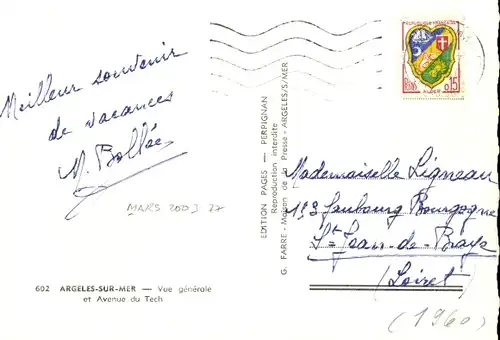 Meilleur souvenir
de vacances
M. Bollée
MARS 2003 27
602 ARGELES-SUR-MER — Vue générale
et Avenue du Tech
EDITION PAGES — PERPIGNAN
Reproduction interdite
G. FARRE - Maison de la Presse - ARGELES/S/MER
REPUBLIQUE FRANCAISE
POSTES 0,15
ALGER
Mademoiselle Ligneau
193 Faubourg Bourgogne
St Jean-de-Braye
(Loiret)
(1960)